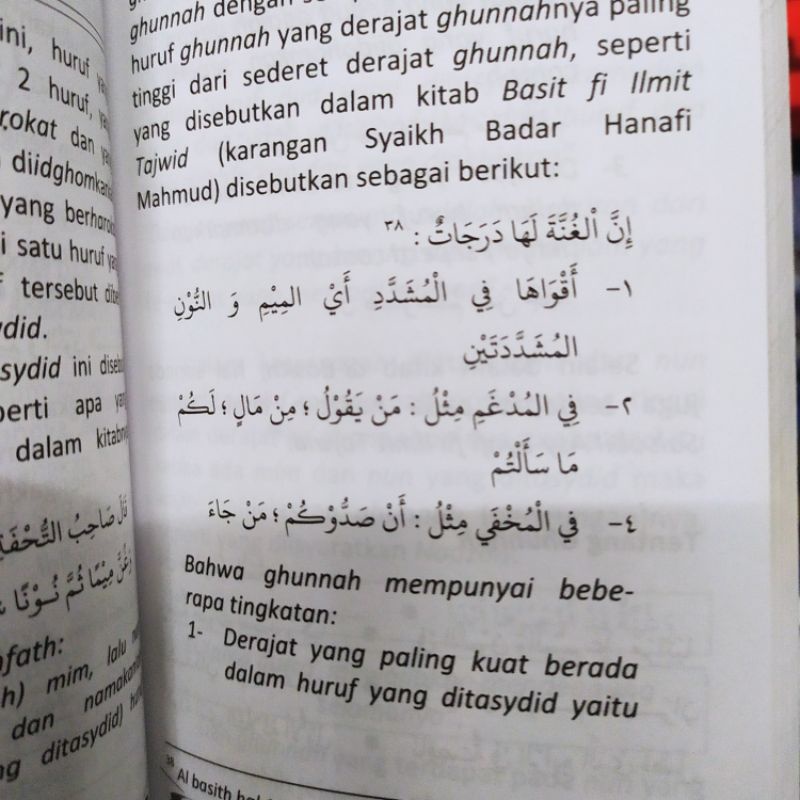 ini, huruf
2 huruf,
dan
yang
satu huruf
tersebut
ini
apa
dalam
قَالَ صَاحِبُ
مِيْمًا ثُمَّ نُوْنًا
mim, lalu
dan
ditasydid)
ghunnah dengan
huruf ghunnah yang derajat ghunnahnya paling
tinggi dari sederet derajat ghunnah, seperti
yang disebutkan dalam kitab Basit fi Ilmit
Tajwid (karangan Syaikh Badar Hanafi
Mahmud) disebutkan sebagai berikut:
إِنَّ الْغُنَّةَ لَهَا دَرَجَاتٌ : ٣٨
١- أَقْوَاهَا فِي الْمُشَدَّدِ أَيْ المِيْمِ وَ النُّوْنِ
المُشَدَّدَتَيْنِ
٢- فِي المُدْغَمِ مِثْلُ : مَنْ يَقُوْلُ ؛ مِنْ مَالٍ ؛ لَكُمْ
مَا سَأَلْتُمْ
٤- فِي الْمُخْفَي مِثْلُ : أَنْ صَدُّوْكُمْ ؛ مَنْ جَاءَ
Bahwa ghunnah mempunyai bebe-
rapa tingkatan:
1- Derajat yang paling kuat berada
dalam huruf yang ditasydid yaitu
38
Al basith